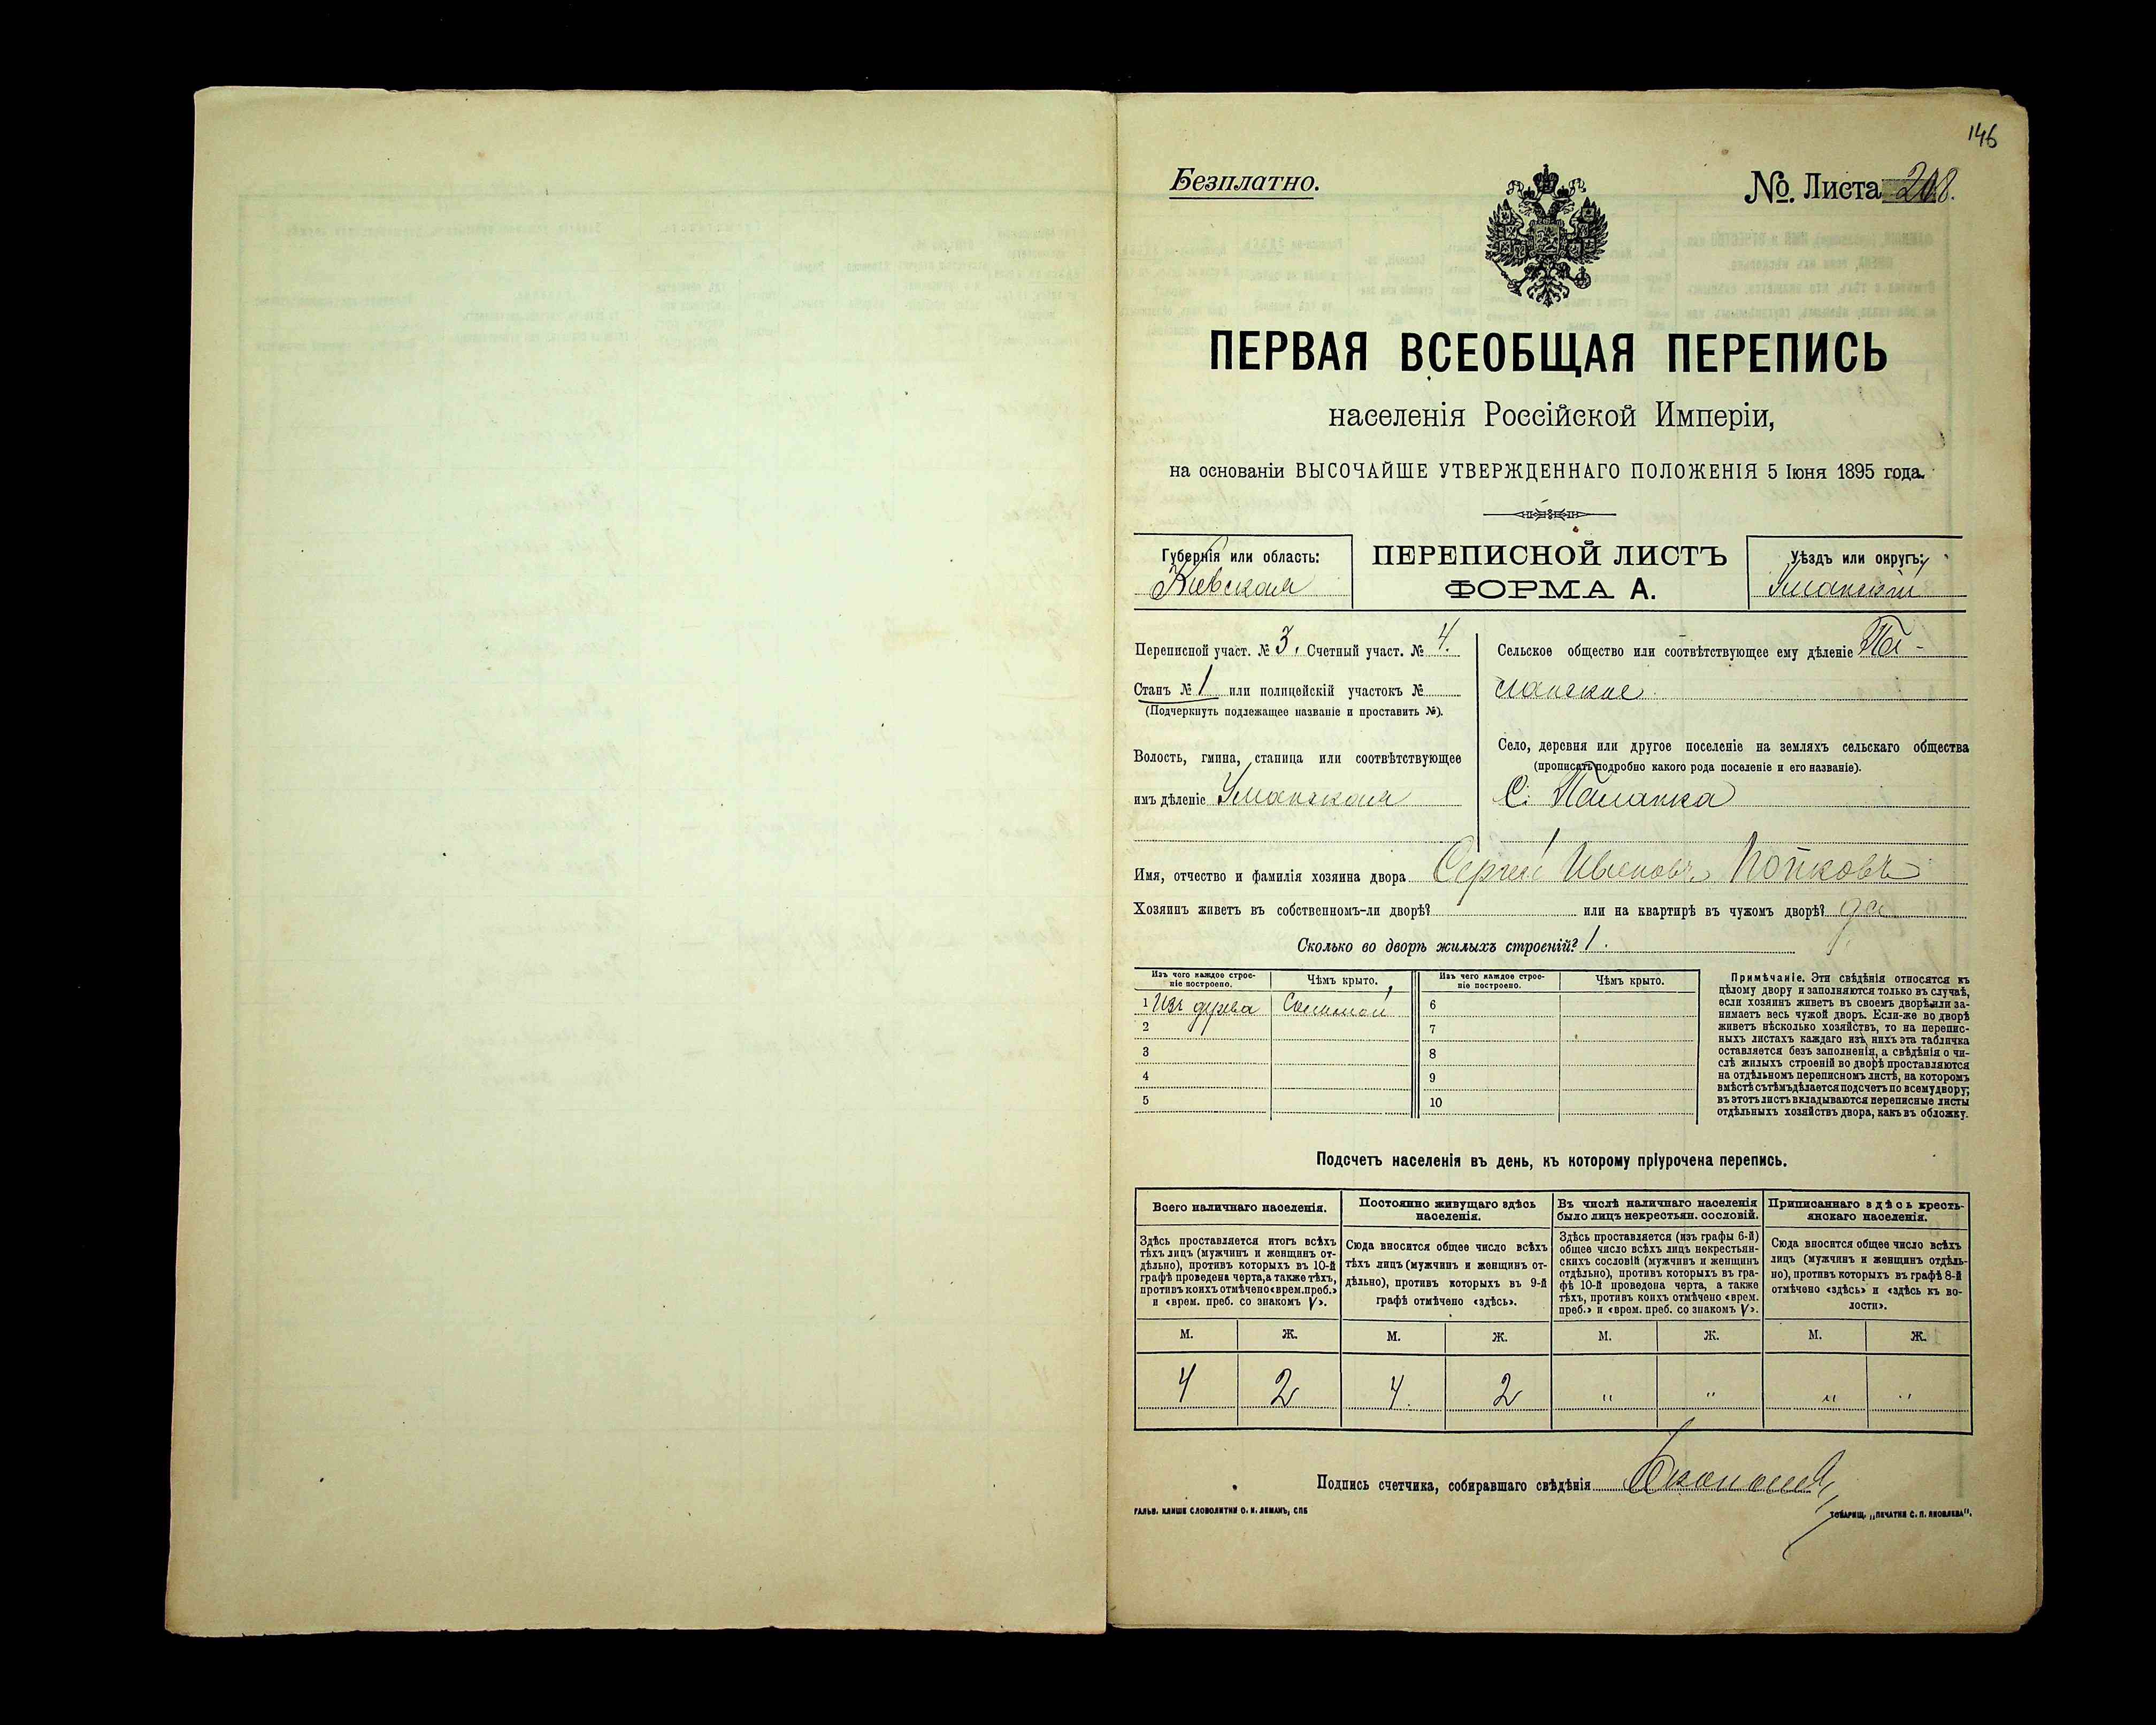 146
Безплатно.
№. Листа 208.
ПЕРВАЯ ВСЕОБЩАЯ ПЕРЕПИСЬ
населенія Россійской Имперіи,
на основаніи ВЫСОЧАЙШЕ УТВЕРЖДЕННАГО ПОЛОЖЕНІЯ 5 Іюня 1895 года.
Губернія или область:
Кіевская
ПЕРЕПИСНОЙ ЛИСТЪ
ФОРМА А.
Уѣздъ или округъ:
Уманскій
Переписной участ. № 3. Счетный участ. № 4.
Станъ № 1 или полицейскій участокъ №
(Подчеркнуть подлежащее названіе и проставить №).
Волость, гмина, станица или соотвѣтствующее
имъ дѣленіе Уманская
Сельское общество или соотвѣтствующее ему дѣленіе Па-
ланское
Село, деревня или другое поселеніе на земляхъ сельскаго общества
(прописать подробно какого рода поселеніе и его названіе).
С. Паланка
Имя, отчество и фамилія хозяина двора Сергѣй Ивановъ
Хозяинъ живетъ въ собственномъ-ли дворѣ? или на квартирѣ въ чужомъ дворѣ? да
Сколько во дворѣ жилыхъ строеній? 1.
Изъ чего каждое строе-
ніе построено.
Чѣмъ крыто.
Изъ чего каждое строе-
ніе построено.
Чѣмъ крыто.
1 Изъ дерева Соломой 6
2 7
3 8
4 9
5 10
Примѣчаніе. Эти свѣдѣнія относятся къ
цѣлому двору и заполняются только въ случаѣ,
если хозяинъ живетъ въ своемъ дворѣ или за-
нимаетъ весь чужой дворъ. Если-же во дворѣ
живетъ нѣсколько хозяйствъ, то на перепис-
ныхъ листахъ каждаго изъ нихъ эта табличка
оставляется безъ заполненія, а свѣдѣнія о чи-
слѣ жилыхъ строеній во дворѣ проставляются
на отдѣльномъ переписномъ листѣ, на которомъ
вмѣстѣ съ тѣмъ дѣлается подсчетъ по всему двору;
въ этотъ листъ вкладываются переписные листы
отдѣльныхъ хозяйствъ двора, какъ въ обложку.
Подсчетъ населенія въ день, къ которому пріурочена перепись.
Всего наличнаго населенія.
Здѣсь проставляется итогъ всѣхъ
тѣхъ лицъ (мужчинъ и женщинъ от-
дѣльно), противъ которыхъ въ 10-й
графѣ проведена черта, а также тѣхъ,
противъ коихъ отмѣчено «врем. преб.»
и «врем. преб. со знакомъ V».
Постоянно живущаго здѣсь
населенія.
Сюда вносится общее число всѣхъ
тѣхъ лицъ (мужчинъ и женщинъ от-
дѣльно), противъ которыхъ въ 9-й
графѣ отмѣчено «здѣсь».
Въ числѣ наличнаго населенія
было лицъ некрестьян. сословій.
Здѣсь проставляется (изъ графы 6-й)
общее число всѣхъ лицъ некрестьян-
скихъ сословій (мужчинъ и женщинъ
отдѣльно), противъ которыхъ въ гра-
фѣ 10-й проведена черта, а также
тѣхъ, противъ коихъ отмѣчено «врем.
преб.» и «врем. преб. со знакомъ V».
Приписаннаго здѣсь кресть-
янскаго населенія.
Сюда вносится общее число всѣхъ
лицъ (мужчинъ и женщинъ отдѣль-
но), противъ которыхъ въ графѣ 8-й
отмѣчено «здѣсь» и «здѣсь къ во-
лости».
М. Ж. М. Ж. М. Ж. М. Ж.
4 2 4. 2 " " " "
Подпись счетчика, собиравшаго свѣдѣнія
ГАЛЬВ. КЛИШЕ СЛОВОЛИТНИ О. И. ЛЕМАНЪ, СПБ
ТОВАРИЩ. „ПЕЧАТНЯ С. П. ЯКОВЛЕВА".